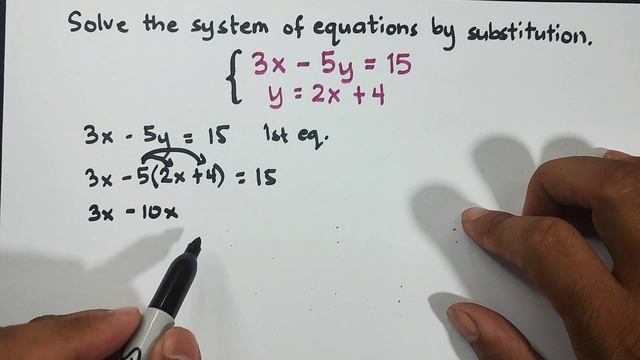 Solve the system of equations by substitution.
3x - 5y = 15
y = 2x + 4
3x - 5y = 15 1st eq.
3x - 5(2x + 4) = 15
3x - 10x